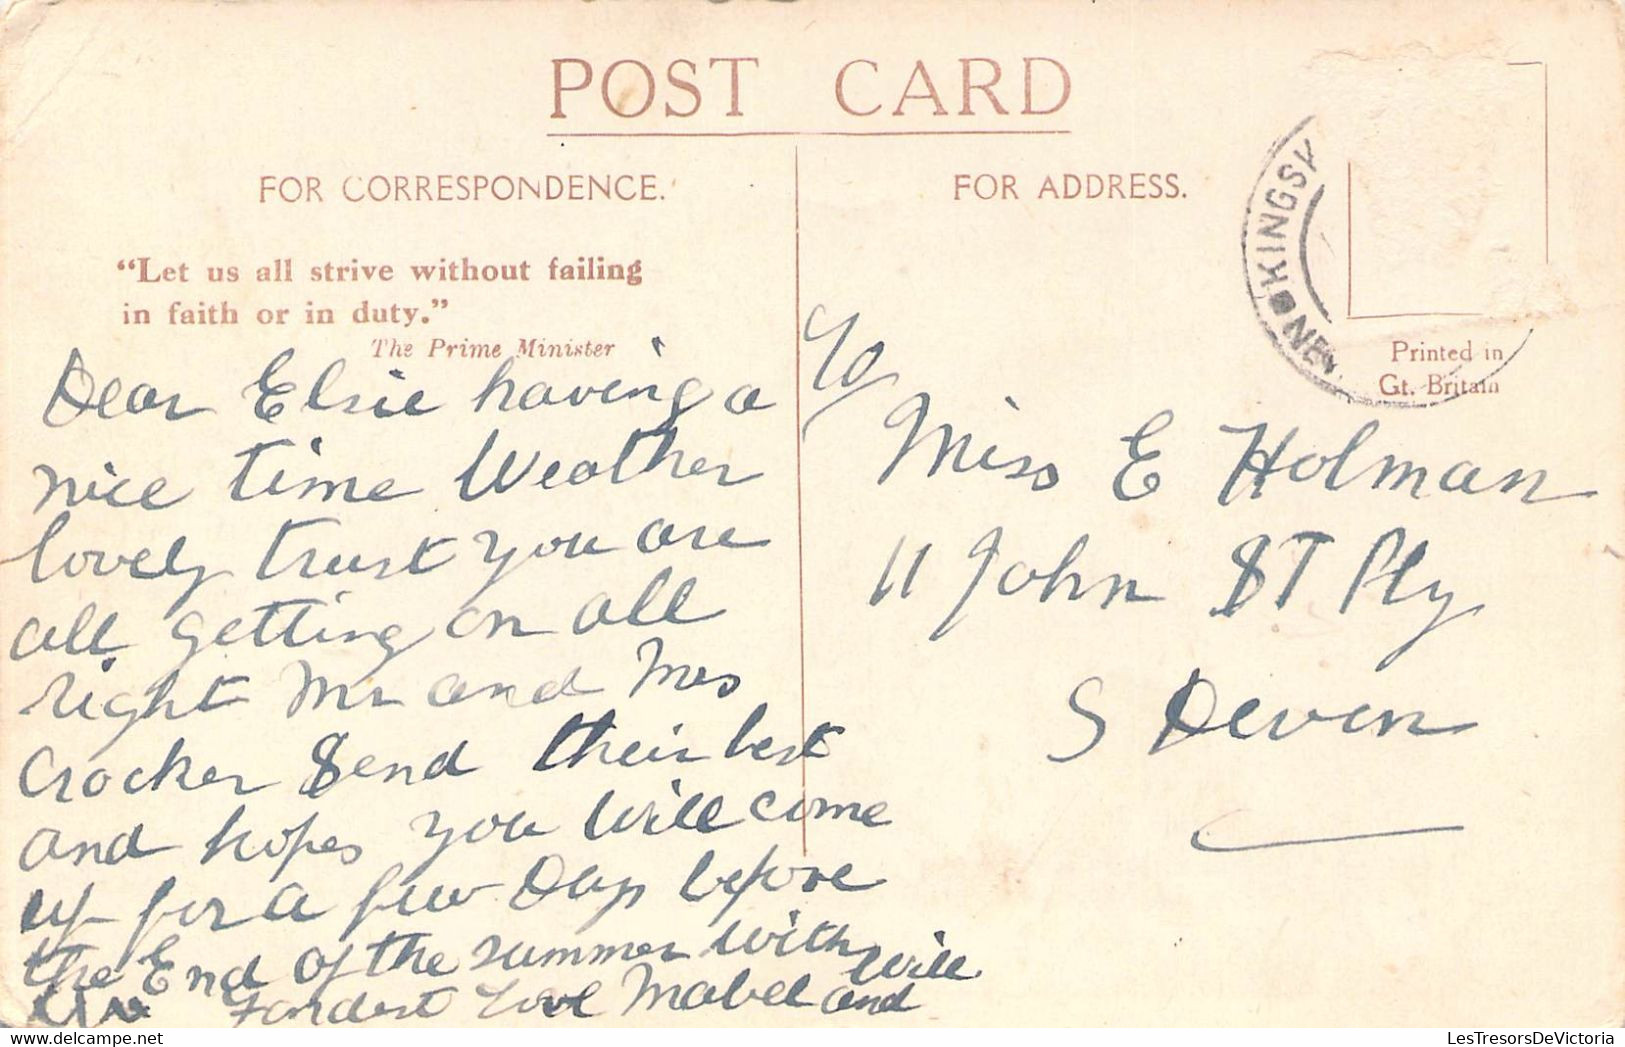 POST CARD
FOR CORRESPONDENCE.
FOR ADDRESS.
KINGSK
NE
"Let us all strive without failing
in faith or in duty."
The Prime Minister
Printed in
Gt. Britain
Dear Elsie having a
nice time Weather
lovely trust you are
all getting on all
right Mr and Mrs
Crocker Send their best
and hopes you will come
up for a few Days before
the End of the summer with
Fondest Love Mabel and
Will
To
Miss E Holman
11 John ST Ply
S Devon
LesTresorsDeVictoria.com